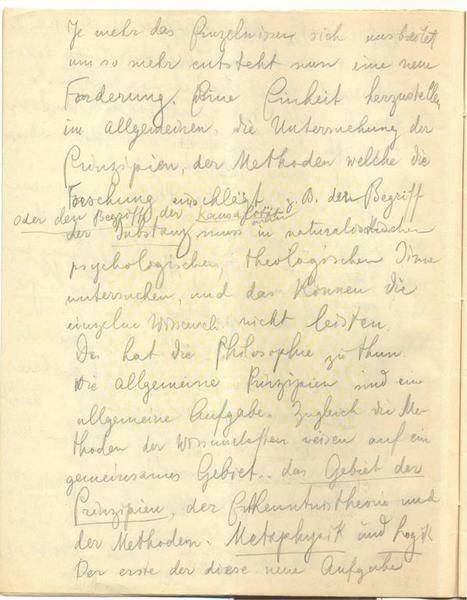 Je mehr das Einzelwissen sich ausbreitet
um so mehr entsteht nun eine neue
Forderung. Eine Einheit herzustellen
im allgemeinen, die Untersuchung der
Prinzipien, der Methoden welche die
Forschung einschlägt z. B. den Begriff
oder den Begriff der Kausalität
der Substanz muss in naturalistischen
psychologischen, theologischen Sinne
untersuchen, und das können die
einzelne Wissensch. nicht leisten.
Das hat die Philosophie zu thun.
Die allgemeine Prinzipien sind ein
allgemeine Aufgabe. Zugleich die Me-
thoden der Wissenschaften weisen auf ein
gemeinsames Gebiet.. das Gebiet der
Prinzipien, der Erkenntnistheorie und
der Methoden. Metaphysik und Logik
Der erste der diese neue Aufgabe